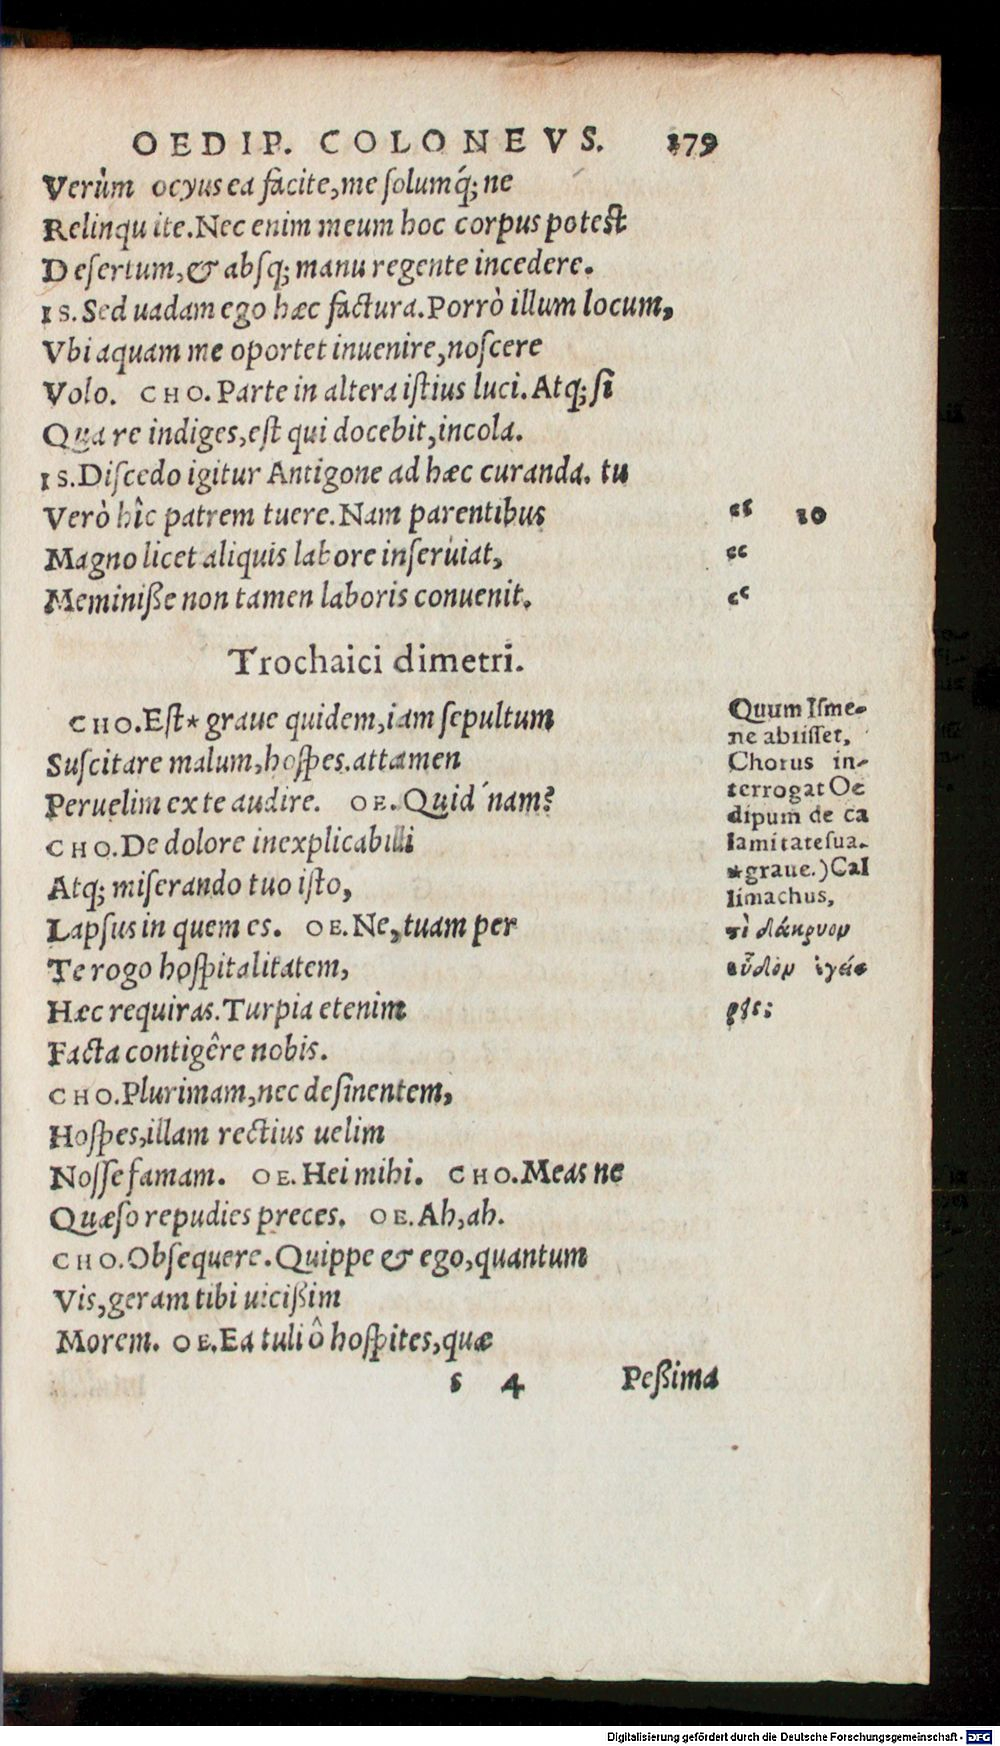 OEDIP. COLONEVS. 279
Verùm ocyus ea facite, me solumq́; ne
Relinquite. Nec enim meum hoc corpus potest
Desertum, & absq; manu regente incedere.
IS. Sed uadam ego hæc factura. Porrò illum locum,
Vbi aquam me oportet inuenire, noscere
Volo. CHO. Parte in altera istius luci. Atq; si
Qua re indiges, est qui docebit, incola.
IS. Discedo igitur Antigone ad hæc curanda. tu
Verò hîc patrem tuere. Nam parentibus “ 10
Magno licet aliquis labore inseruiat, “
Meminiße non tamen laboris conuenit. “
Trochaici dimetri.
CHO. Est* graue quidem, iam sepultum
Suscitare malum, hospes. attamen
Peruelim ex te audire. OE. Quid´nam?
CHO. De dolore inexplicabili
Atq; miserando tuo isto,
Lapsus in quem es. OE. Ne, tuam per
Te rogo hospitalitatem,
Hæc requiras. Turpia etenim
Facta contigêre nobis.
CHO. Plurimam, nec desinentem,
Hospes, illam rectius uelim
Nosse famam. OE. Hei mihi. CHO. Meas ne
Quæso repudies preces. OE. Ah, ah.
CHO. Obsequere. Quippe & ego, quantum
Vis, geram tibi uicißim
Morem. OE. Ea tuli ô hospites, quæ
s 4 Peßima
Quum Isme-
ne abiisset,
Chorus in-
terrogat Oe
dipum de ca
lamitate sua.
*graue.) Cal
limachus,
τὶ δάκρυον
εὗδον ἐγεί-
ρεις;
Digitalisierung gefördert durch die Deutsche Forschungsgemeinschaft - DFG